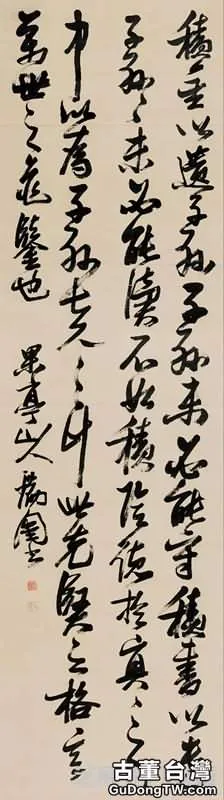 積金以遺子孫子孫未必能守積書以遺
子孫々未必能讀不如積陰德於冥々之
中以為子孫長久之計此先賢之格言
萬世之龜鑒也 果亭山人瑞圖書
古董台灣
GuDongTW.com